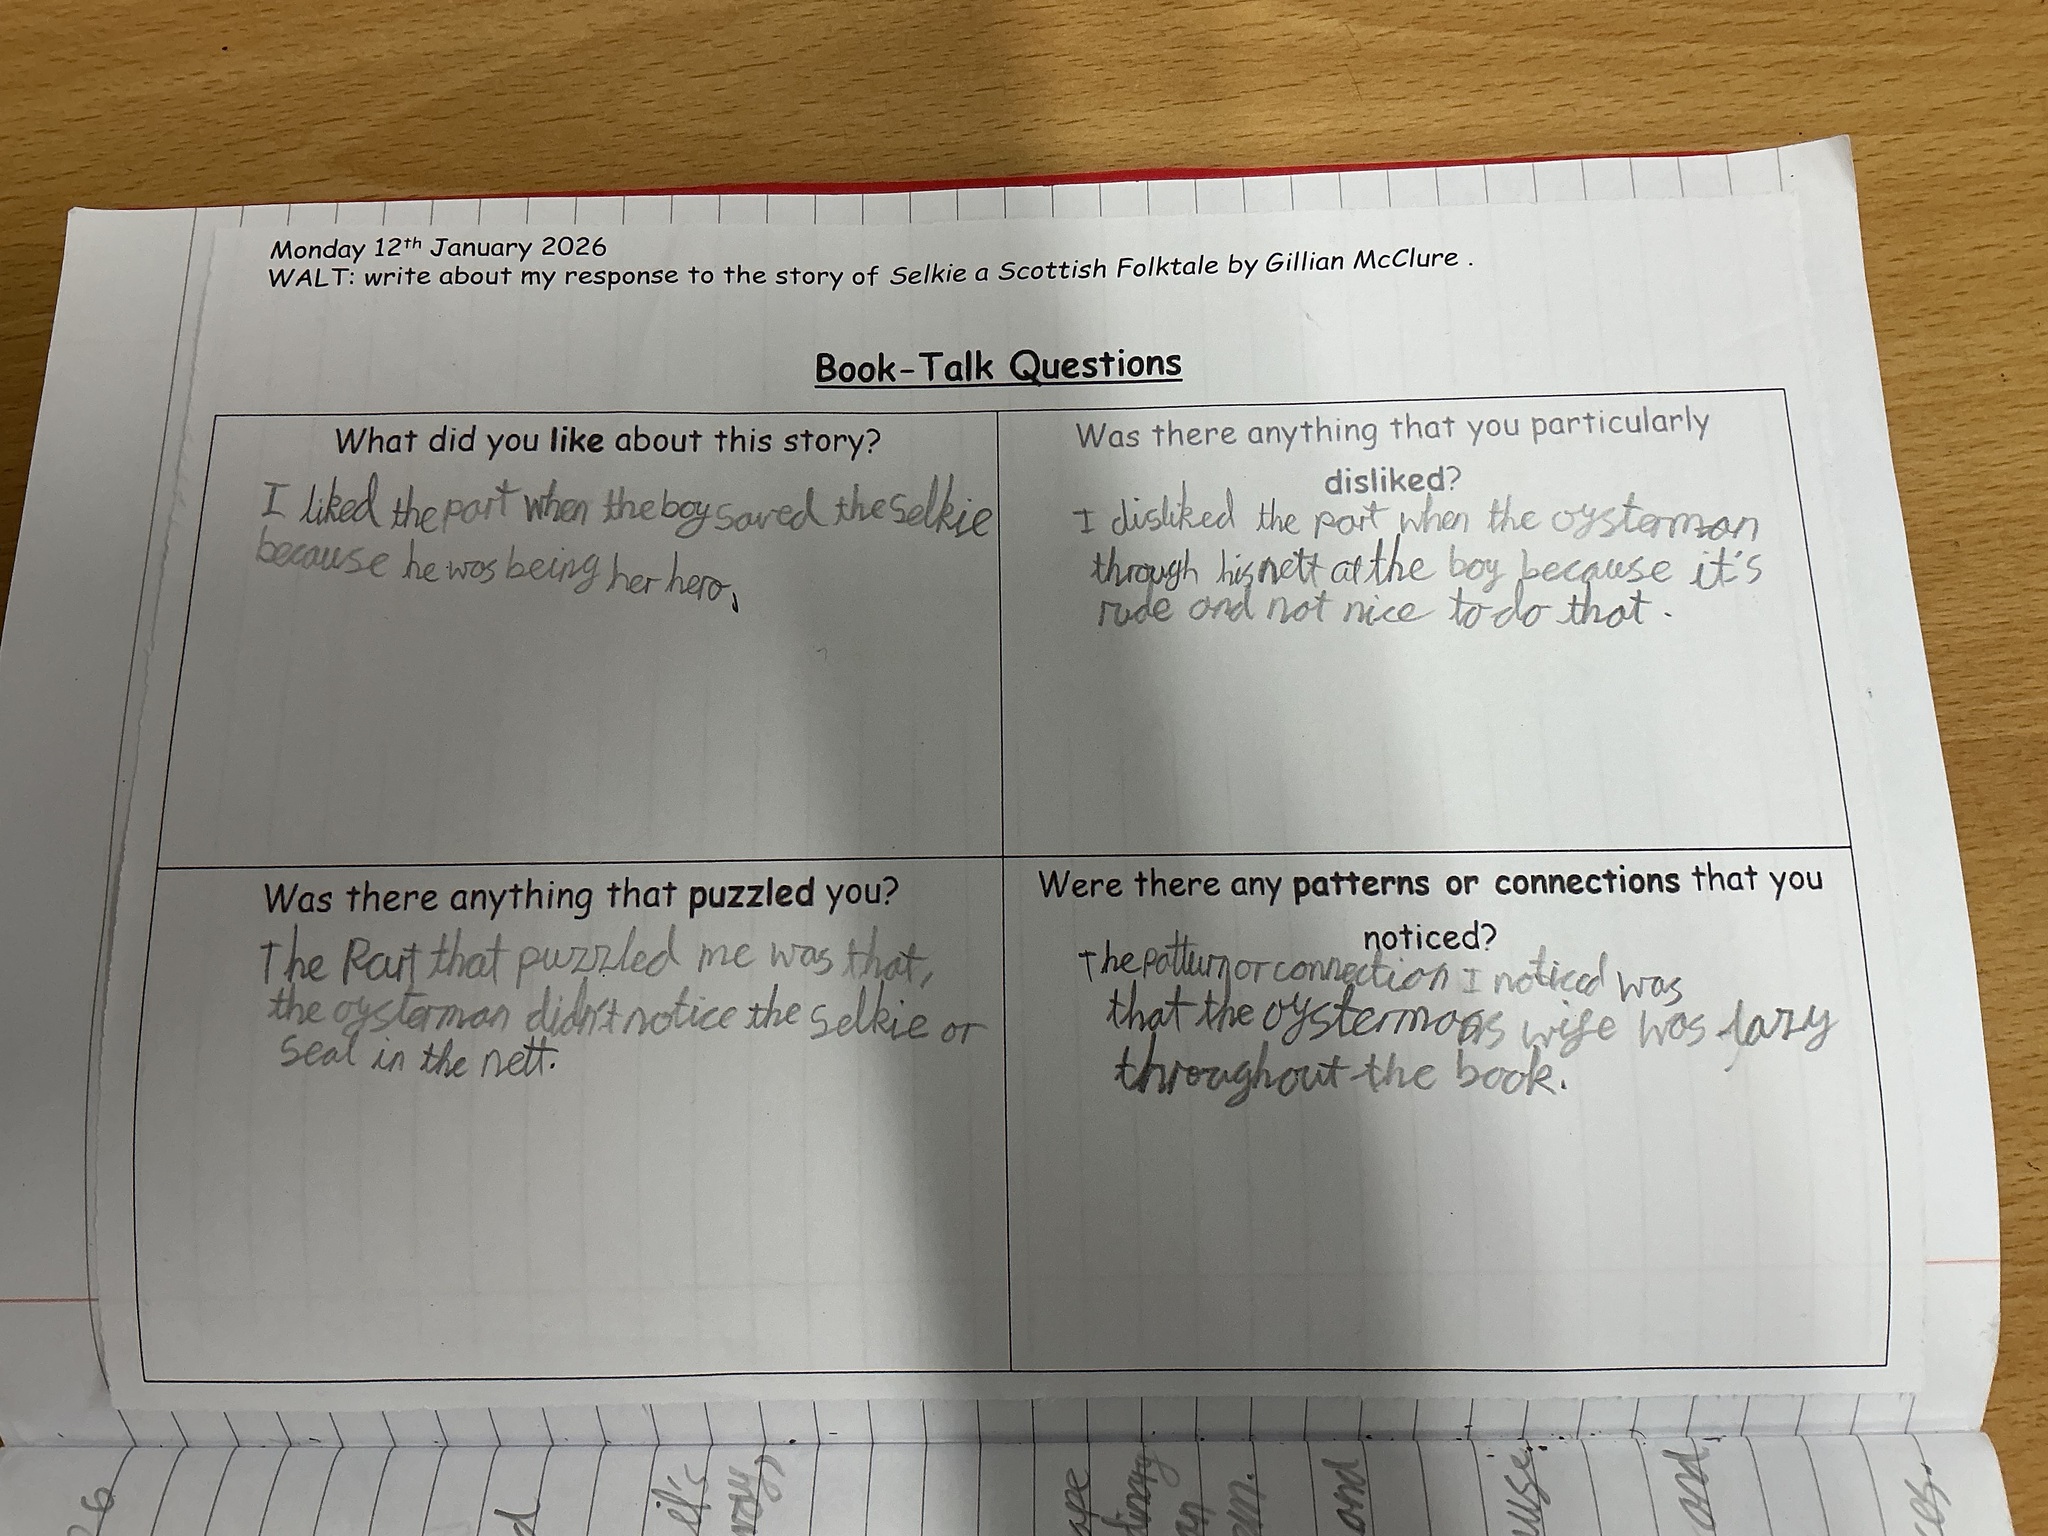 Monday 12th January 2026
WALT: write about my response to the story of Selkie a Scottish Folktale by Gillian McClure .
Book-Talk Questions
What did you like about this story?
I liked the part when the boy saved the selkie
because he was being her hero,
Was there anything that you particularly
disliked?
I disliked the part when the oysterman
through his nett at the boy because it's
rude and not nice to do that.
Was there anything that puzzled you?
The Part that puzzled me was that,
the oysterman didn't notice the selkie or
seal in the nett.
Were there any patterns or connections that you
noticed?
The pattern or connection I noticed was
that the oystermans wife was lazy
throughout the book.
it's
and
and